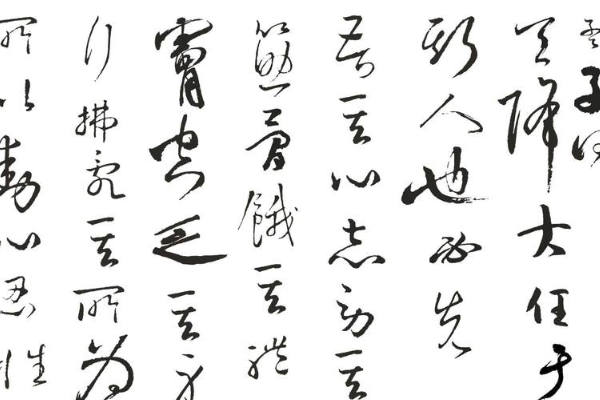 孟子
天降大任于
斯人也必先
苦其心志勞其
筋骨餓其體
膚空乏其身
行拂亂其所為
所以動心忍性